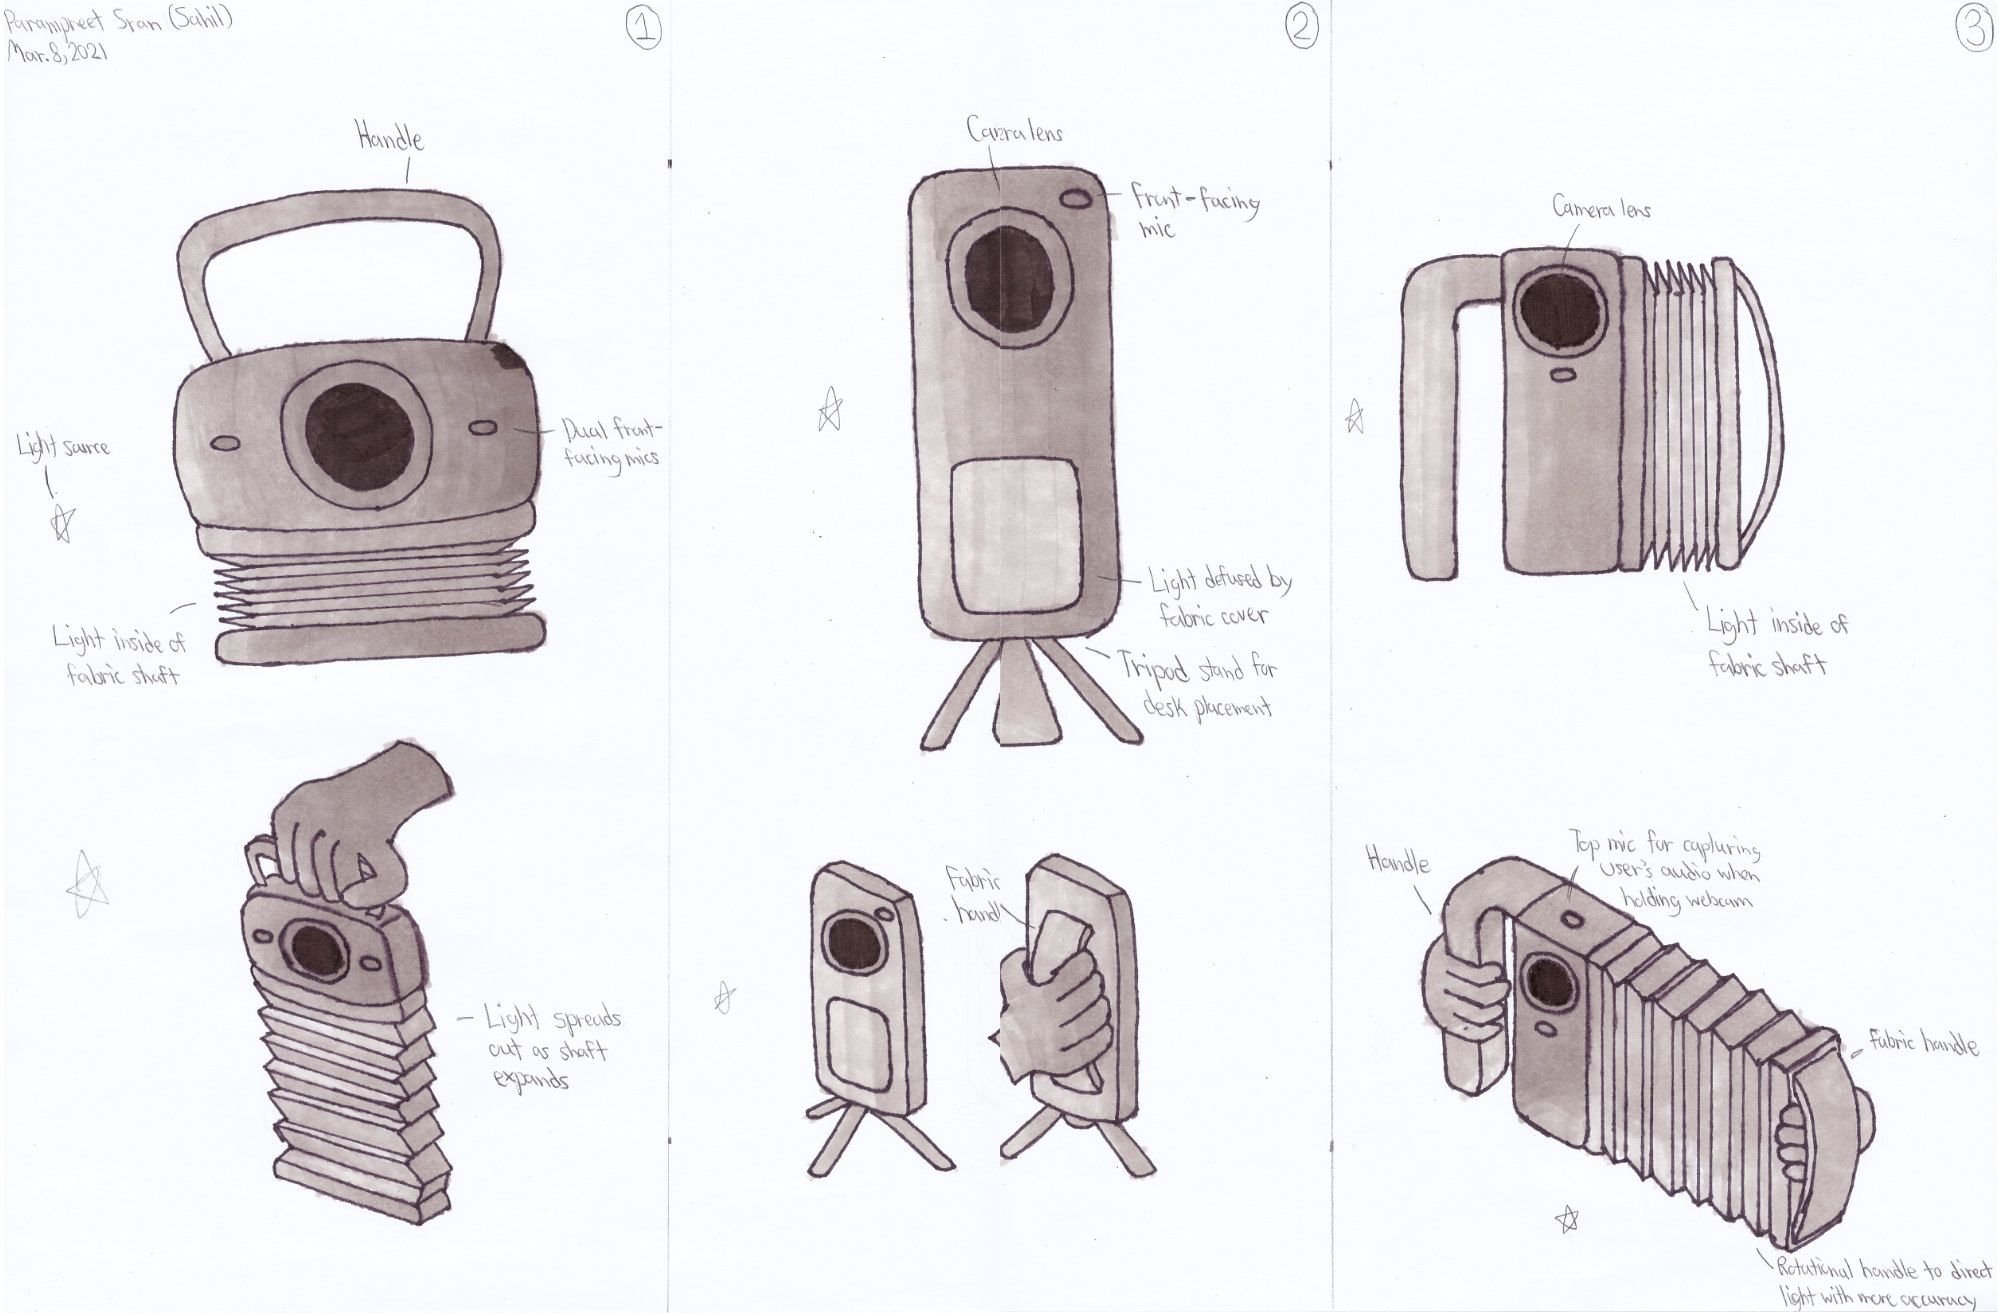 Parampreet Sran (Sahil)
Mar. 8, 2021
1
Handle
Light source
Dual front-
facing mics
Light inside of
fabric shaft
Light spreads
out as shaft
expands
2
Camera lens
Front-facing
mic
Light defused by
fabric cover
Tripod stand for
desk placement
Fabric
handl
3
Camera lens
Light inside of
fabric shaft
Handle
Top mic for capturing
user's audio when
holding webcam
Fabric handle
Rotational handle to direct
light with more accuracy